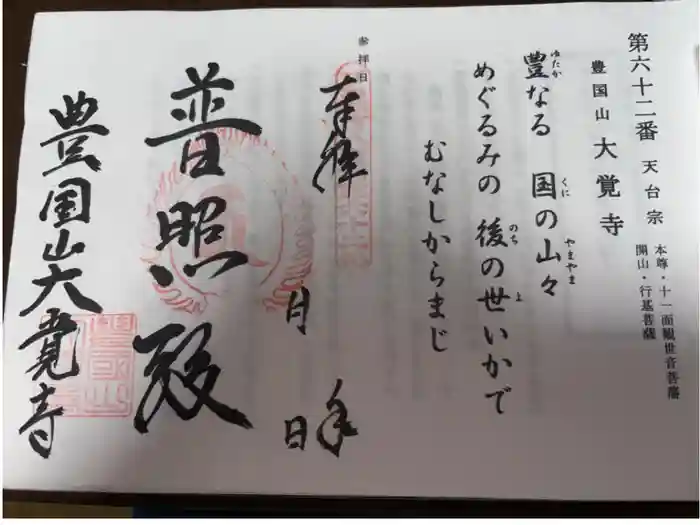 第六十二番 天台宗
本尊・十一面観世音菩薩
開山・行基菩薩
豊国山 大覚寺
豊なる 国の山々
ゆたか くに やまやま
めぐるみの 後の世いかで
のち よ
むなしからまじ
参拝日
奉拝
年
月 日
普照殿
豊国山大覚寺